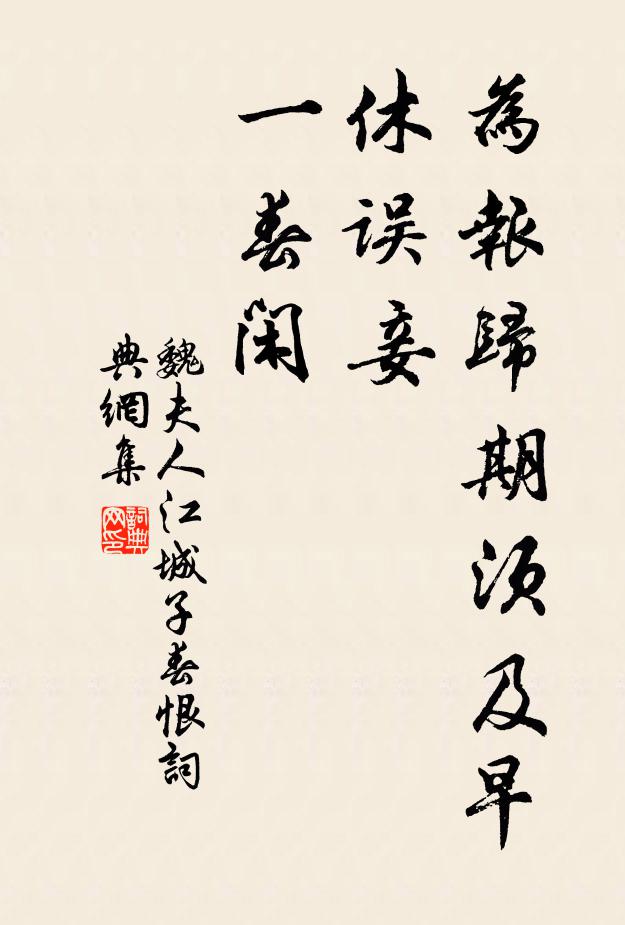 為報歸期須及早
休誤妾
一春閑
魏夫人江城子春恨詞
典網集
詞典网印